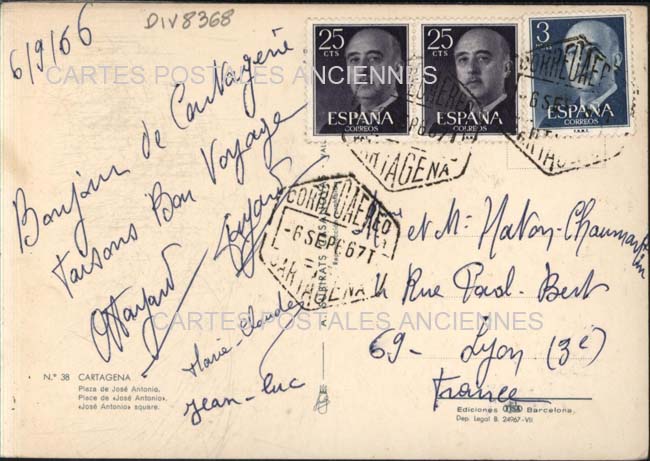 DIV8368
6/9/66
Bonjour de Cartagène
faisons Bon Voyage
Marie-Claude
Jean-luc
25
CTS
ESPAÑA
CORREOS
25
CTS
ESPAÑA
CORREOS
3
ESPAÑA
CORREOS
CORREO AEREO
-6 SEP 67 T
CARTAGENA
CARTES POSTALES ANCIENNES
CARTES POSTALES ANCIENNES
et M.
4 Rue Paul-Bert
69- Lyon (3e)
France
N.º 38 CARTAGENA
Plaza de José Antonio.
Place de «José Antonio».
«José Antonio» square.
Ediciones Barcelona.
Dep. Legal B. 24967-VII